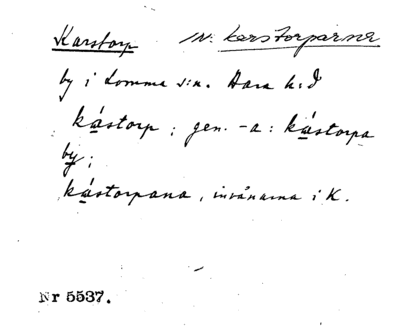 Karstorp IV: karstorparna
by i Lomma s:n. Bara h:d
kástorp; gen. -a: kástorpa
by;
kástorpana, invånarna i K.
Nr 5537.